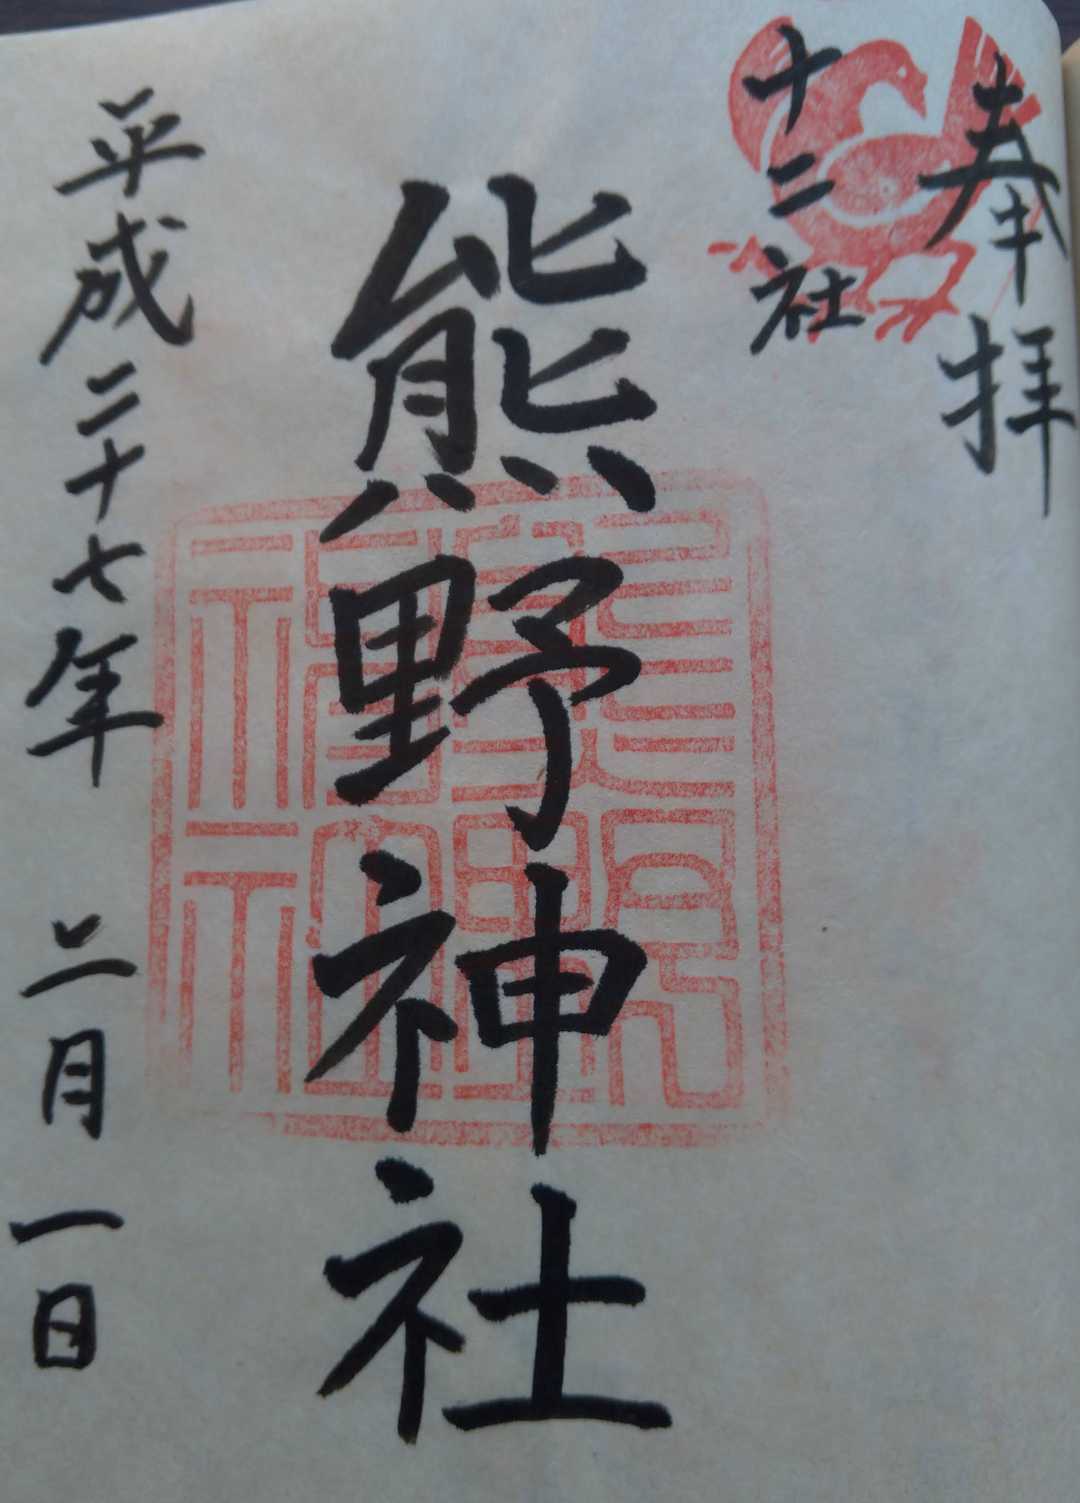 奉拝
十二社
熊野神社
平成二十七年 二月一日